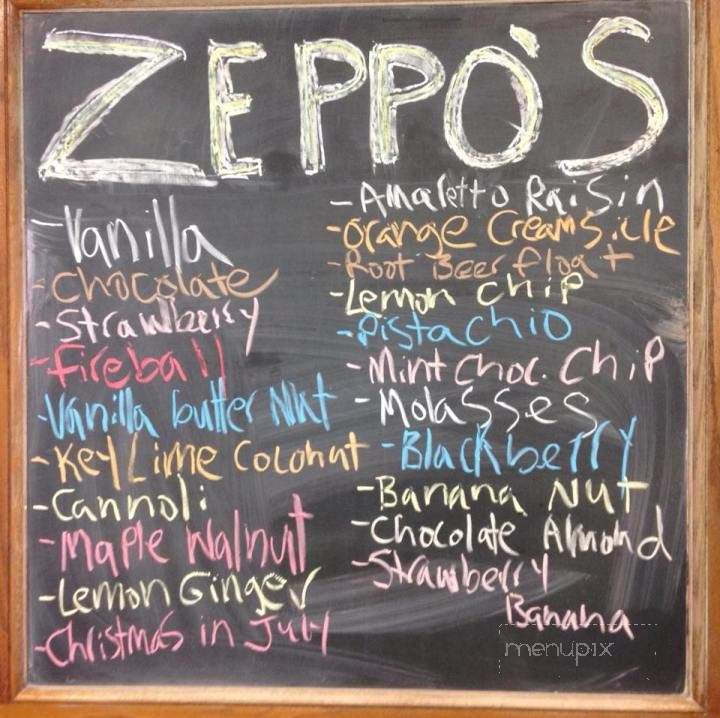 ZEPPO'S
-Vanilla
-Chocolate
-Strawberry
-Fireball
-Vanilla butter Nut
-Key Lime Coconut
-Cannoli
-Maple Walnut
-Lemon Ginger
-Christmas in July
-Amaretto Raisin
-Orange Creamsicle
-Root Beer float
-Lemon Chip
-Pistachio
-Mint Choc. Chip
-Molasses
-Blackberry
-Banana Nut
-Chocolate Almond
-Strawberry
Banana
menupix